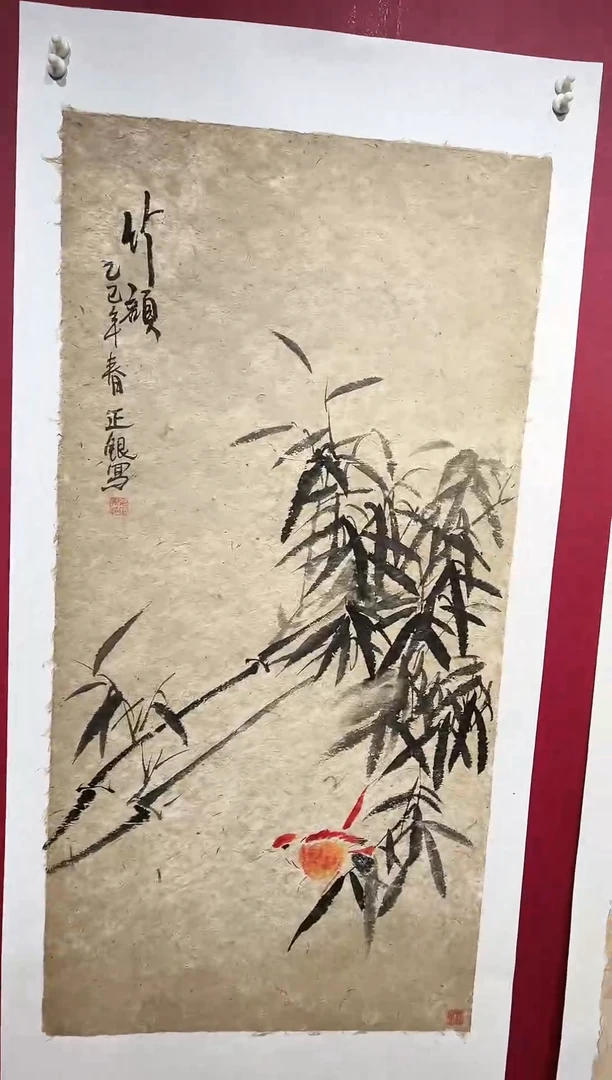 竹韻
乙巳年春 正銀寫